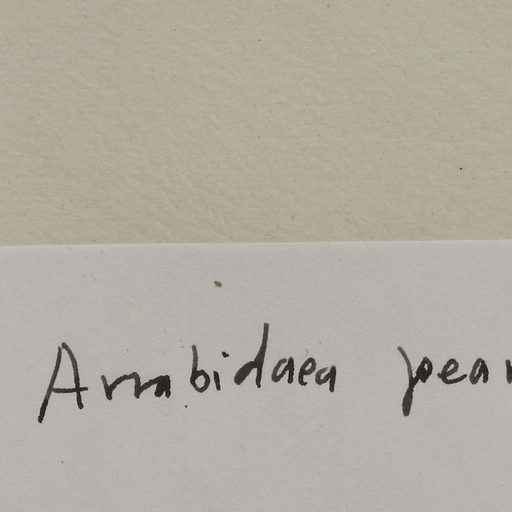 Arrabidaea pear